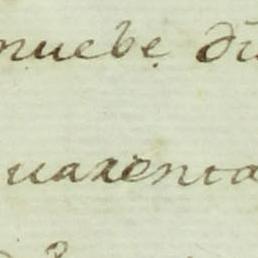 nuebe di
uarenta